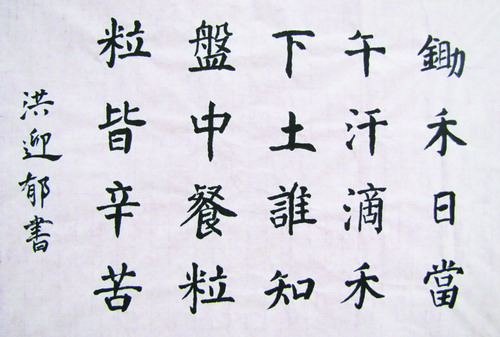 鋤禾日當
午汗滴禾
下土誰知
盤中餐粒
粒皆辛苦
洪迎郁書